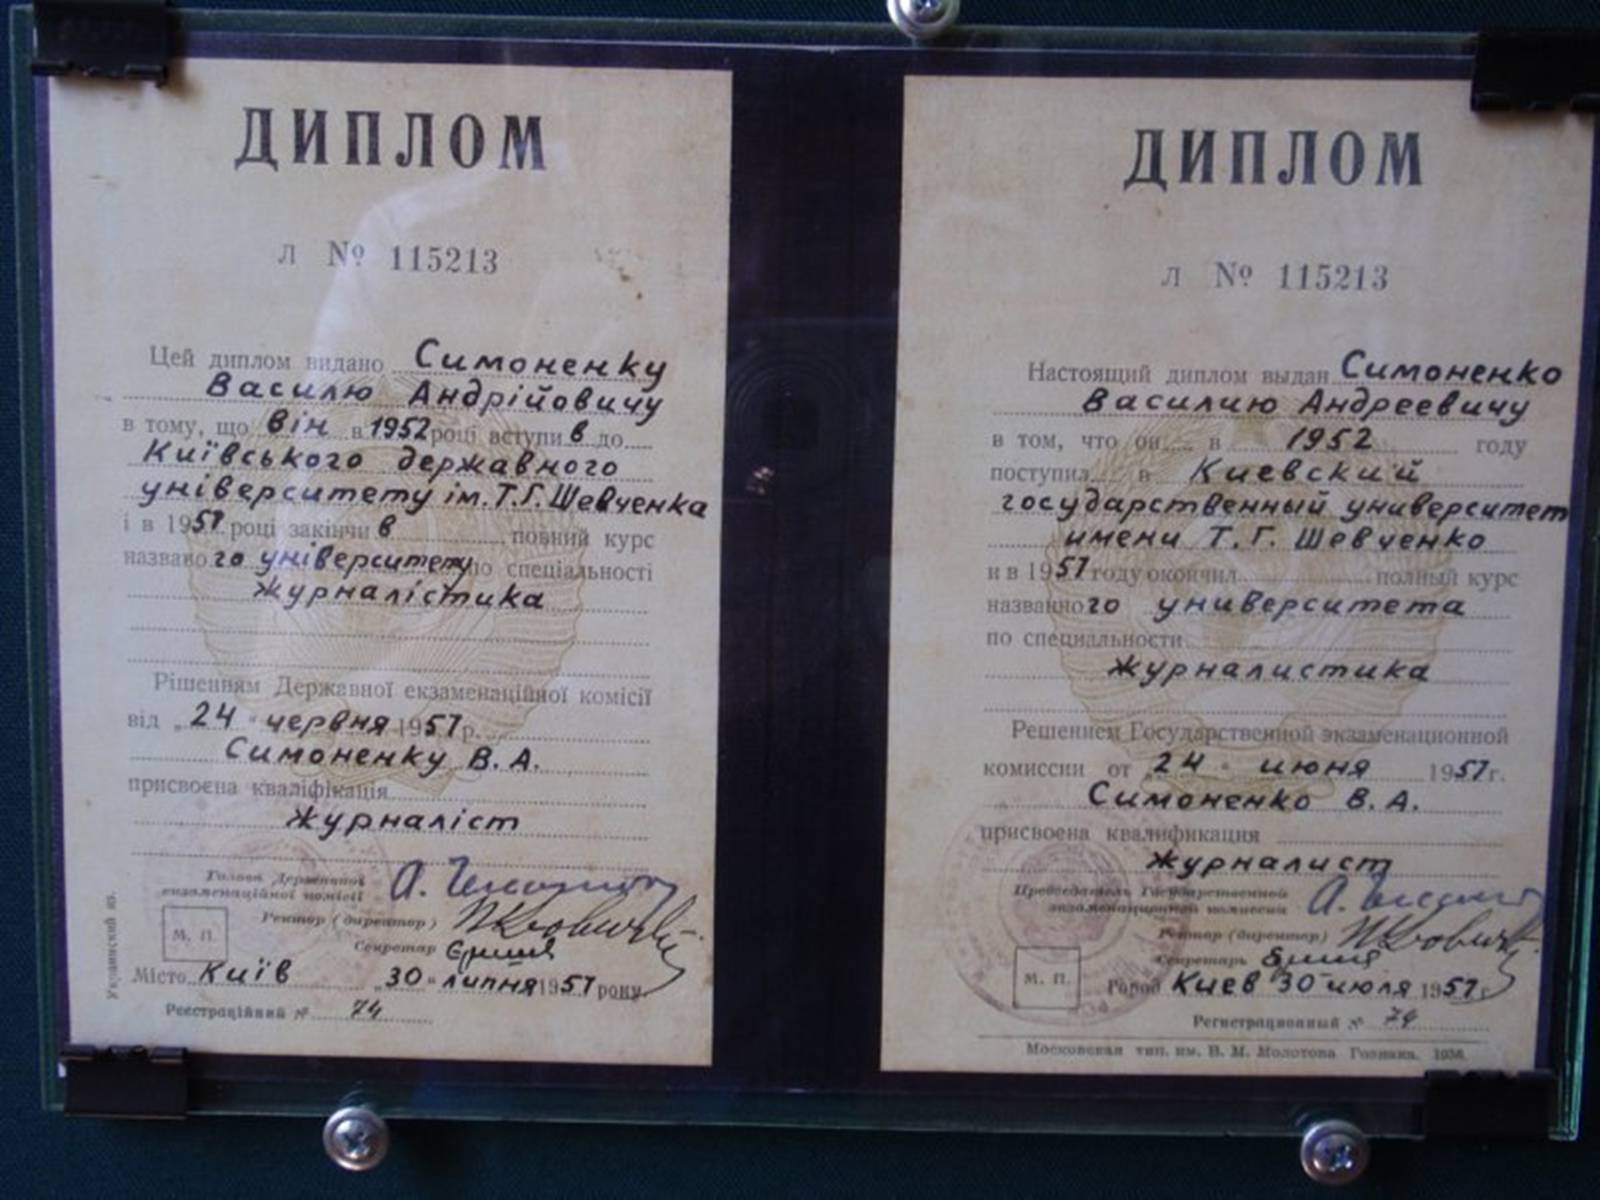 ДИПЛОМ
Л № 115213
Цей диплом видано Симоненку
Василю Андрійовичу
в тому, що він в 1952 році вступив до
Київського державного
університету ім. Т. Г. Шевченка
і в 1957 році закінчив повний курс
названого університету по спеціальності
журналістика
Рішенням Державної екзаменаційної комісії
від „24" червня 1957 р.
Симоненку В. А.
присвоєна кваліфікація
журналіст
Голова Державної
екзаменаційної комісії
Ректор (директор)
М. П.
Секретар
Місто Київ „30" липня 1957 року.
Реєстраційний № 74
Украинский яз.
ДИПЛОМ
Л № 115213
Настоящий диплом выдан Симоненко
Василию Андреевичу
в том, что он в 1952 году
поступил в Киевский
государственный университет
имени Т. Г. Шевченко
и в 1957 году окончил полный курс
названного университета
по специальности
журналистика
Решением Государственной экзаменационной
комиссии от „24" июня 1957 г.
Симоненко В. А.
присвоена квалификация
журналист
Председатель Государственной
экзаменационной комиссии
Ректор (директор)
Секретарь
М. П.
Город Киев 30 июля 1957 г.
Регистрационный № 74
Московская тип. им. В. М. Молотова Гознака. 1956.